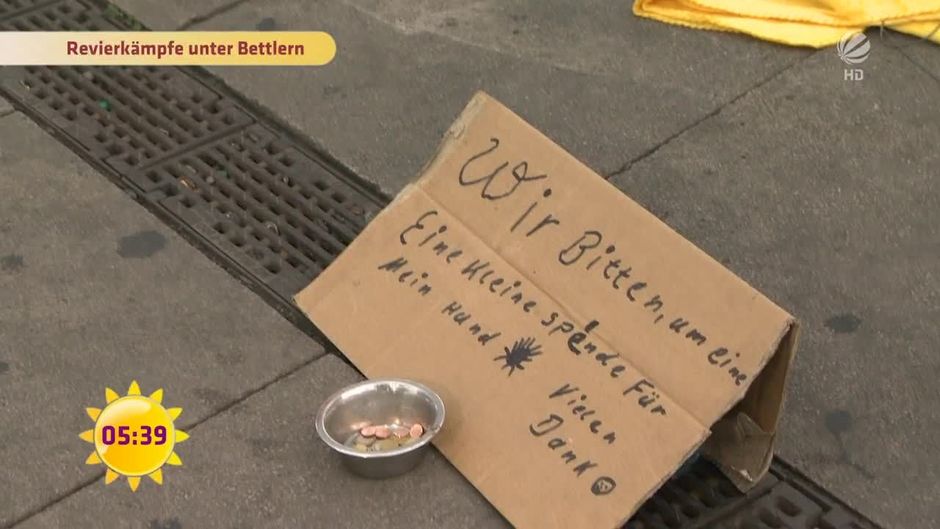 Revierkämpfe unter Bettlern
HD
Wir Bitten, um eine
Eine kleine spende Für
Mein Hund
Vielen
Dank
05:39